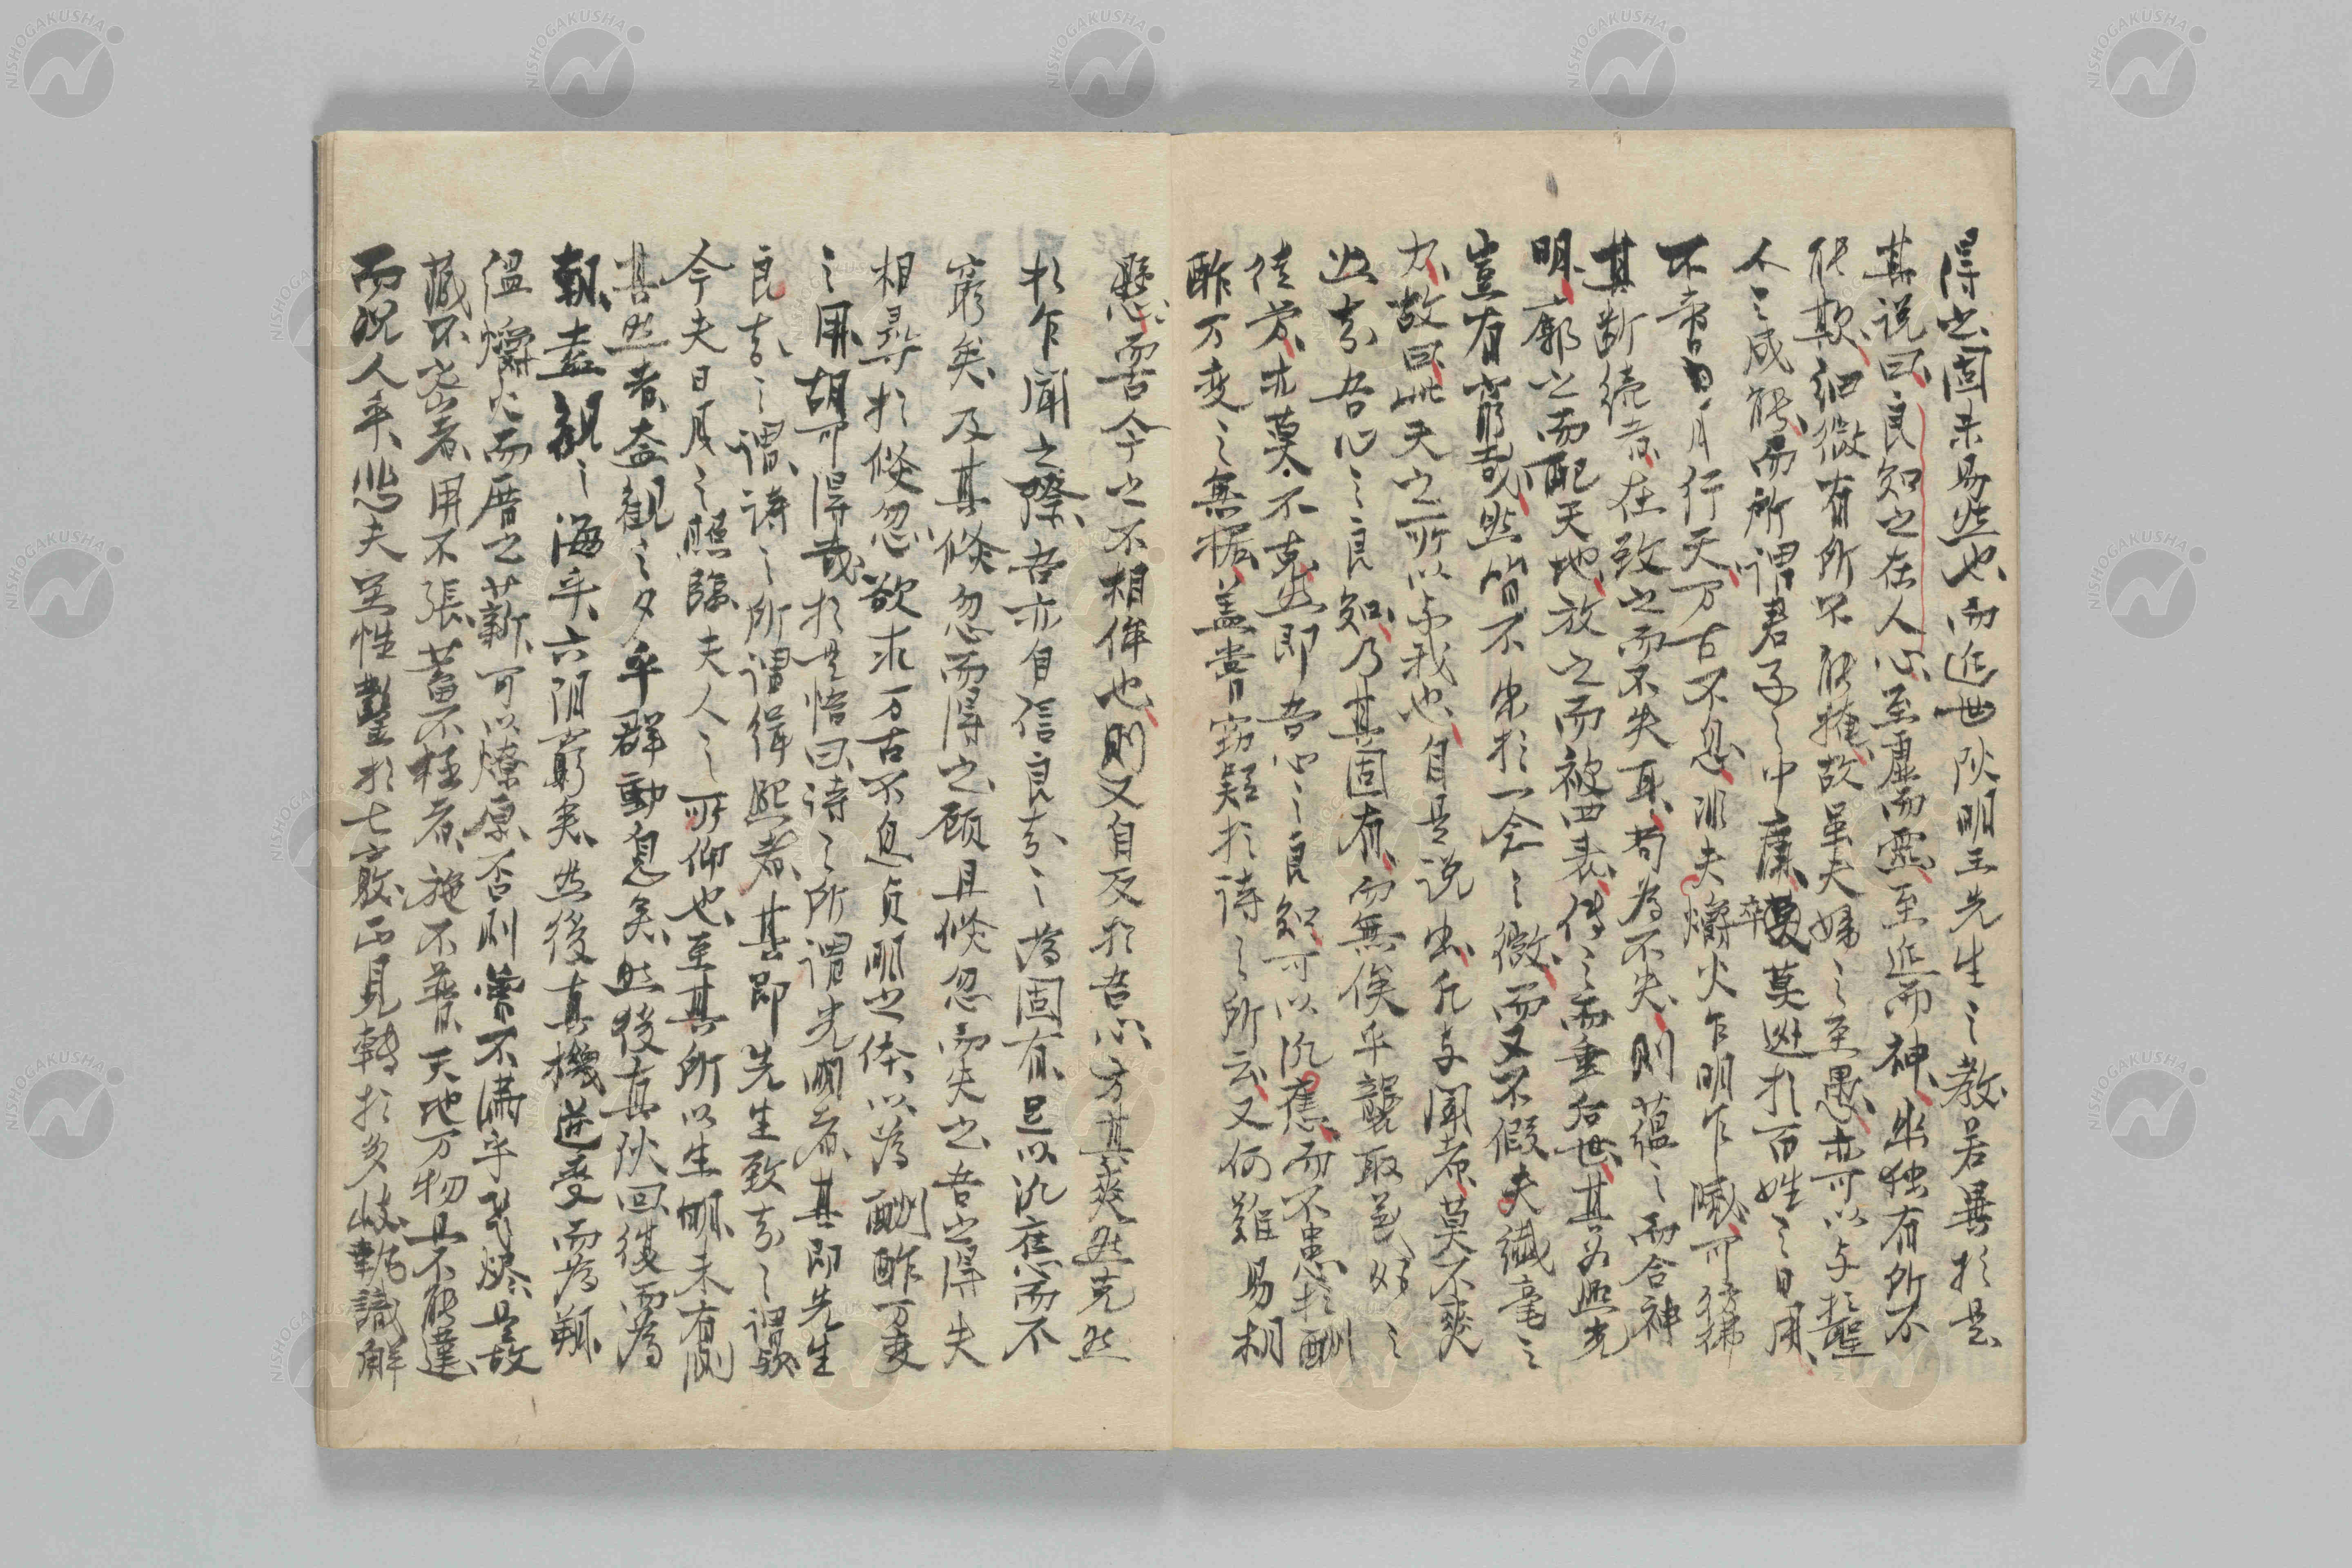 得也固未易然也而近世陽明王先生之教若異於是
其説曰良知之在人心至虚而霊至近而神幽独有所不
能欺細微有所不能掩故虽夫婦之至愚亦可以与於聖
人之成能而所謂君子之中庸卒莫逃於百姓之日用
不啻日月行天万古不息非夫爝火乍明乍滅可彷彿
其断続者在致之而不失耳苟為不失則蘊之而合神
明廓之而配天地放之而被四表传之而垂后世其為熙光
豈有窮哉然皆不出於一念之微而又不假夫纎毫之
力故曰此天之所以与我也自是说出凡与聞者莫不爽
然吾心之良知乃其固有而無俟乎襲取
亦莫不克然即吾心之良知可以汎應而不患於酬
酢万変之無据盖嘗窃疑於詩之所云又何難易相
懸而古今之不相侔也則又自反於吾心方其爽然克然
於乍聞之際吾亦自信良知之為固有足以汎應而不
窮矣及其倐忽而得之顾且倐忽而失之吾之得失
相尋於倐忽欲求万古不息貞明之体以為酬酢万変
之用胡可得哉於是悟曰詩之所謂光明者其即先生
良知之謂詩之所謂緝熙者其即先生致知之謂歟
今夫日月之照臨夫人之所仰也至其所以生明未有測
其然者盍観之夕乎群動息矣然後真陽回復而為
朝盍観之海乎六阴窮矣然後真機逆变而為朔
温爝火而厝之薪可以燎原否則曽不满乎残燼是故
藏不密者用不張蓄不極者施不普天地万物且不能違
而况人乎悲夫空性鑿於七竅正見轉於多岐執識解